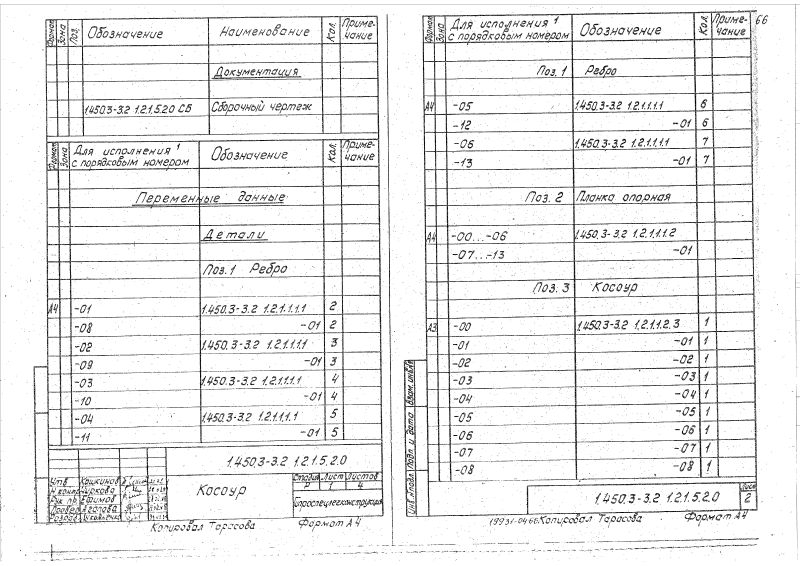 Формат Зона Поз. Обозначение Наименование Кол. Приме-чание
Документация
1.450.3-3.2 1.2.1.5.2.0 СБ Сборочный чертеж
Формат Зона Для исполнения 1 с порядковым номером Обозначение Кол. Приме-чание
Переменные данные
Детали
Поз. 1 Ребро
А4 -01 1.450.3-3.2 1.2.1.1.1.1 2
-08 -01 2
-02 1.450.3-3.2 1.2.1.1.1.1 3
-09 -01 3
-03 1.450.3-3.2 1.2.1.1.1.1 4
-10 -01 4
-04 1.450.3-3.2 1.2.1.1.1.1 5
-11 -01 5
1.450.3-3.2 1.2.1.5.2.0
Утв
Н контр
Рук пр. Ефимов
Провер Агапова
Разраб
Косоур
Стадия Лист Листов
Р 1 4
Гипроспецлегконструкция
Копировал Тарасова Формат А4
66
Формат Зона Для исполнения 1 с порядковым номером Обозначение Кол. Приме-чание
Поз. 1 Ребро
А4 -05 1.450.3-3.2 1.2.1.1.1.1 6
-12 -01 6
-06 1.450.3-3.2 1.2.1.1.1.1 7
-13 -01 7
Поз. 2 Планка опорная
А4 -00...-06 1.450.3-3.2 1.2.1.1.1.2
-07...-13 -01
Поз. 3 Косоур
А3 -00 1.450.3-3.2 1.2.1.1.2.3 1
-01 -01 1
-02 -02 1
-03 -03 1
-04 -04 1
-05 -05 1
-06 -06 1
-07 -07 1
-08 -08 1
Инв №подл Подп и дата Взам.инв№
1.450.3-3.2 1.2.1.5.2.0
Лист
2
19931-04 66 Копировал Тарасова Формат А4